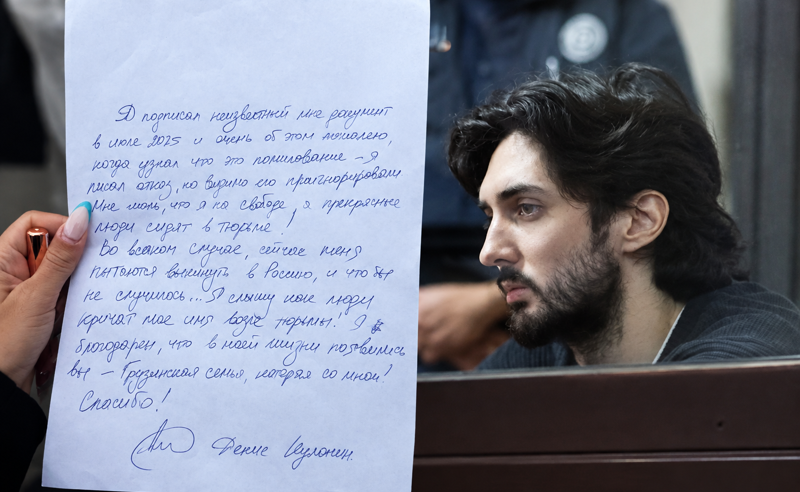 Я подписал неизвестный мне документ
в июле 2025 и очень об этом пожалею,
когда узнал что это помилование – я
писал отказ, но видимо его проигнорировали
Мне жаль, что я на свободе, а прекрасные
люди сидят в тюрьме!
Во всяком случае, сейчас меня
пытаются выкинуть в Россию, и что бы
не случилось... Я слышу как люди
кричат мое имя возле тюрьмы. Я
благодарен, что в моей жизни появились
вы – Грузинская семья, которая со мной!
Спасибо!
Денис Кулонин.